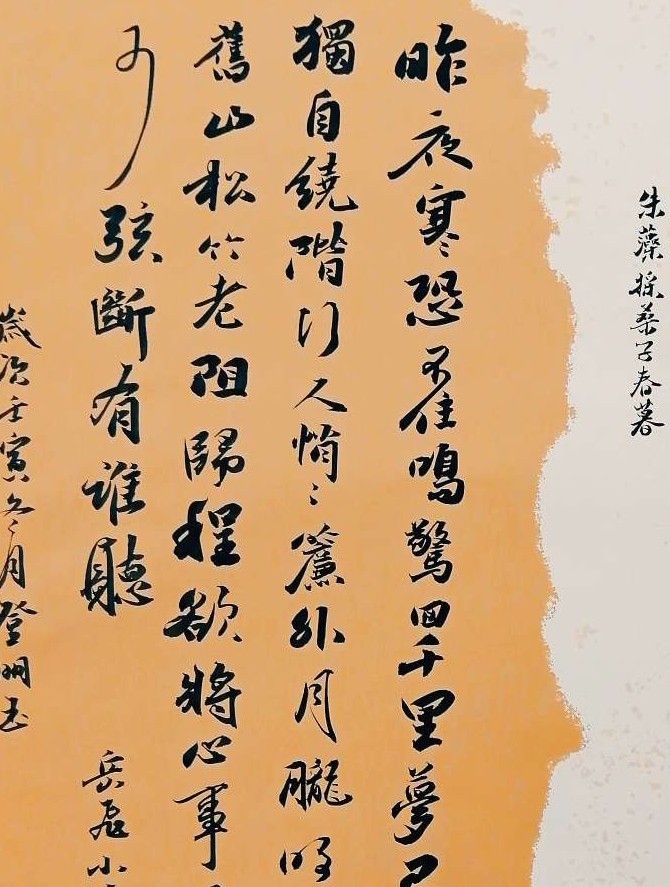 朱藻採桑子春暮
昨夜寒恐不住鳴驚回千里夢已
獨自繞階行人悄〻簾外月朧明
舊山松竹老阻歸程欲將心事
少弦斷有誰聽
岳飛小
歲次壬寅冬月登明